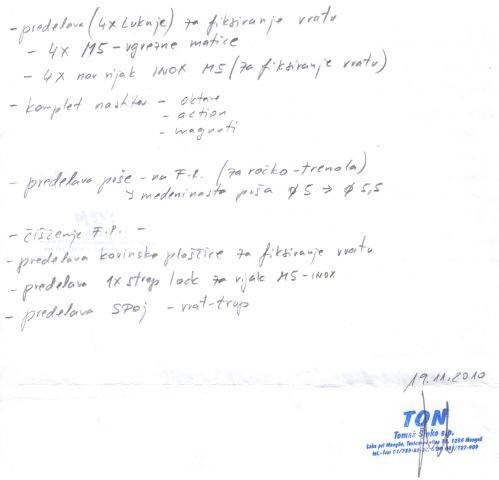 - predelava (4x Luknje) za fiksiranje vratu
- 4x M5 - vgrezne matice
- 4x nov vijak INOX M5 (za fiksiranje vratu)
- komplet nashtev - oktave
- action
- magneti
- predelava puše - na F.R. (za ročko - tremola)
↳ medeninasta puša ϕ 5 → ϕ 5,5
- čiščenje F.R. -
- predelava kovinske ploščice za fiksiranje vratu
- predelava 1x strep lock za vijak M5 - INOX
- predelava SPOJ - vrat-trup
19.11.2010
TON
Tomaž s.p.
Loka pri Mengšu, 1234 Mengeš